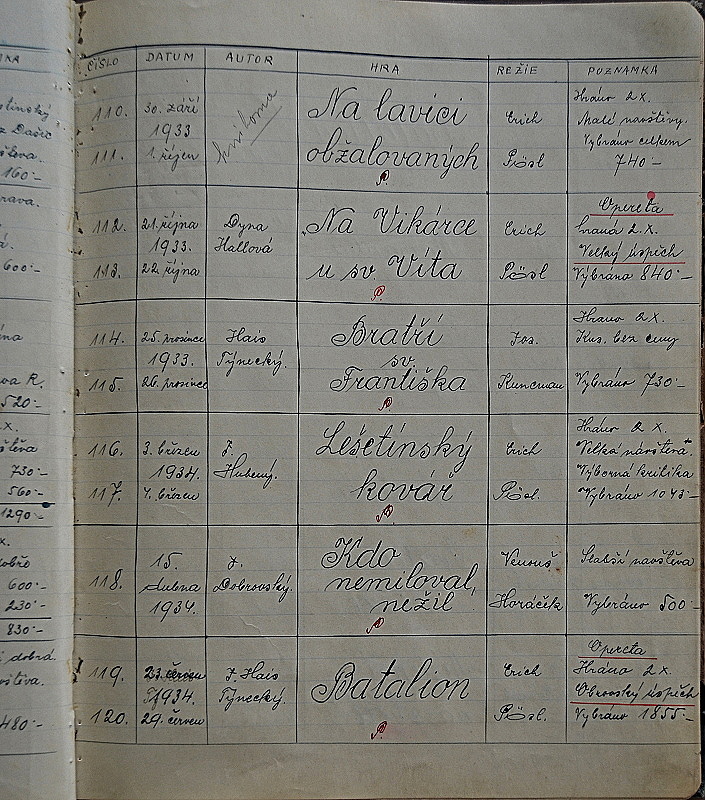 ČÍSLO DATUM AUTOR HRA REŽIE POZNÁMKA
110. 30. září 1933 Na lavici Erich Hráno 2x.
Malá návštěva.
111. 1. říjen obžalovaných Pösl Vybráno celkem
740·-
112. 21. října Dyna Na Vikárce Erich Opereta
1933. Hallová hraná 2x.
Velký úspěch
113. 22. října u sv. Víta Pösl Vybráno 840·-
114. 25. prosince Hais Bratří Jos. Hráno 2x.
1933. Týnecký. sv. Kus. bez ceny
115. 26. prosince Františka Kuncman Vybráno 730·-
116. 3. březen F. Lešetínský Erich Hráno 2x.
1934. Hubený. Velká návštěva.
Výborná kritika
117. 4. březen kovář Pösl. Vybráno 1043·-
15. J. Kdo Venouš Slabší návštěva
118. dubna Dobrovský. nemiloval,
1934. nežil Horáček Vybráno 500·-
119. 23. červen J. Hais Batalion Erich Opereta
1934. Týnecký. Hráno 2x.
Obrovský úspěch
120. 29. červen Pösl. Vybráno 1855·-
160·-
600·-
520·-
730·-
560·-
1290·-
600·-
230·-
830·-
480·-